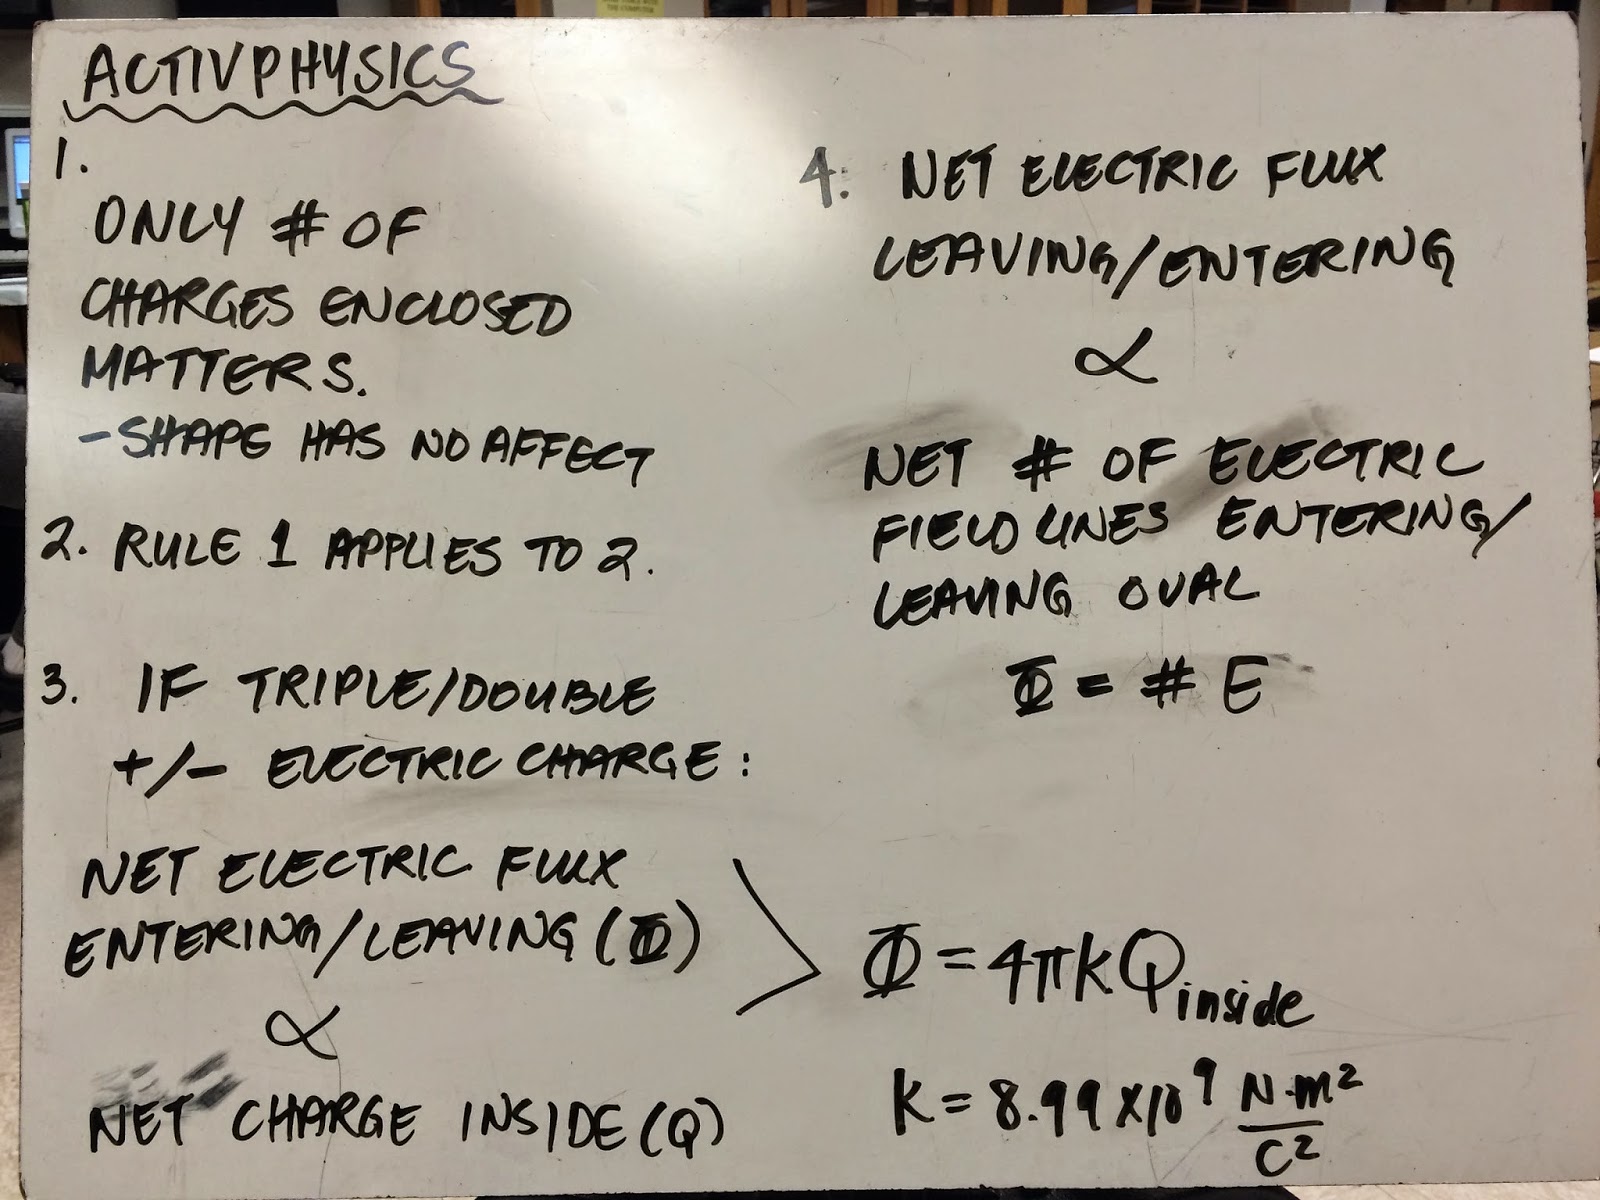 ACTIVPHYSICS
1.
ONLY # OF
CHARGES ENCLOSED
MATTERS.
- SHAPE HAS NO AFFECT
2. RULE 1 APPLIES TO 2.
3. IF TRIPLE/DOUBLE
+/- ELECTRIC CHARGE:
NET ELECTRIC FLUX
ENTERING/LEAVING (Φ)
∝
NET CHARGE INSIDE (Q)
4. NET ELECTRIC FLUX
LEAVING/ENTERING
∝
NET # OF ELECTRIC
FIELD LINES ENTERING/
LEAVING OVAL
Φ = # E
Φ = 4πkQinside
K = 8.99 x10⁹ N·m²/C²